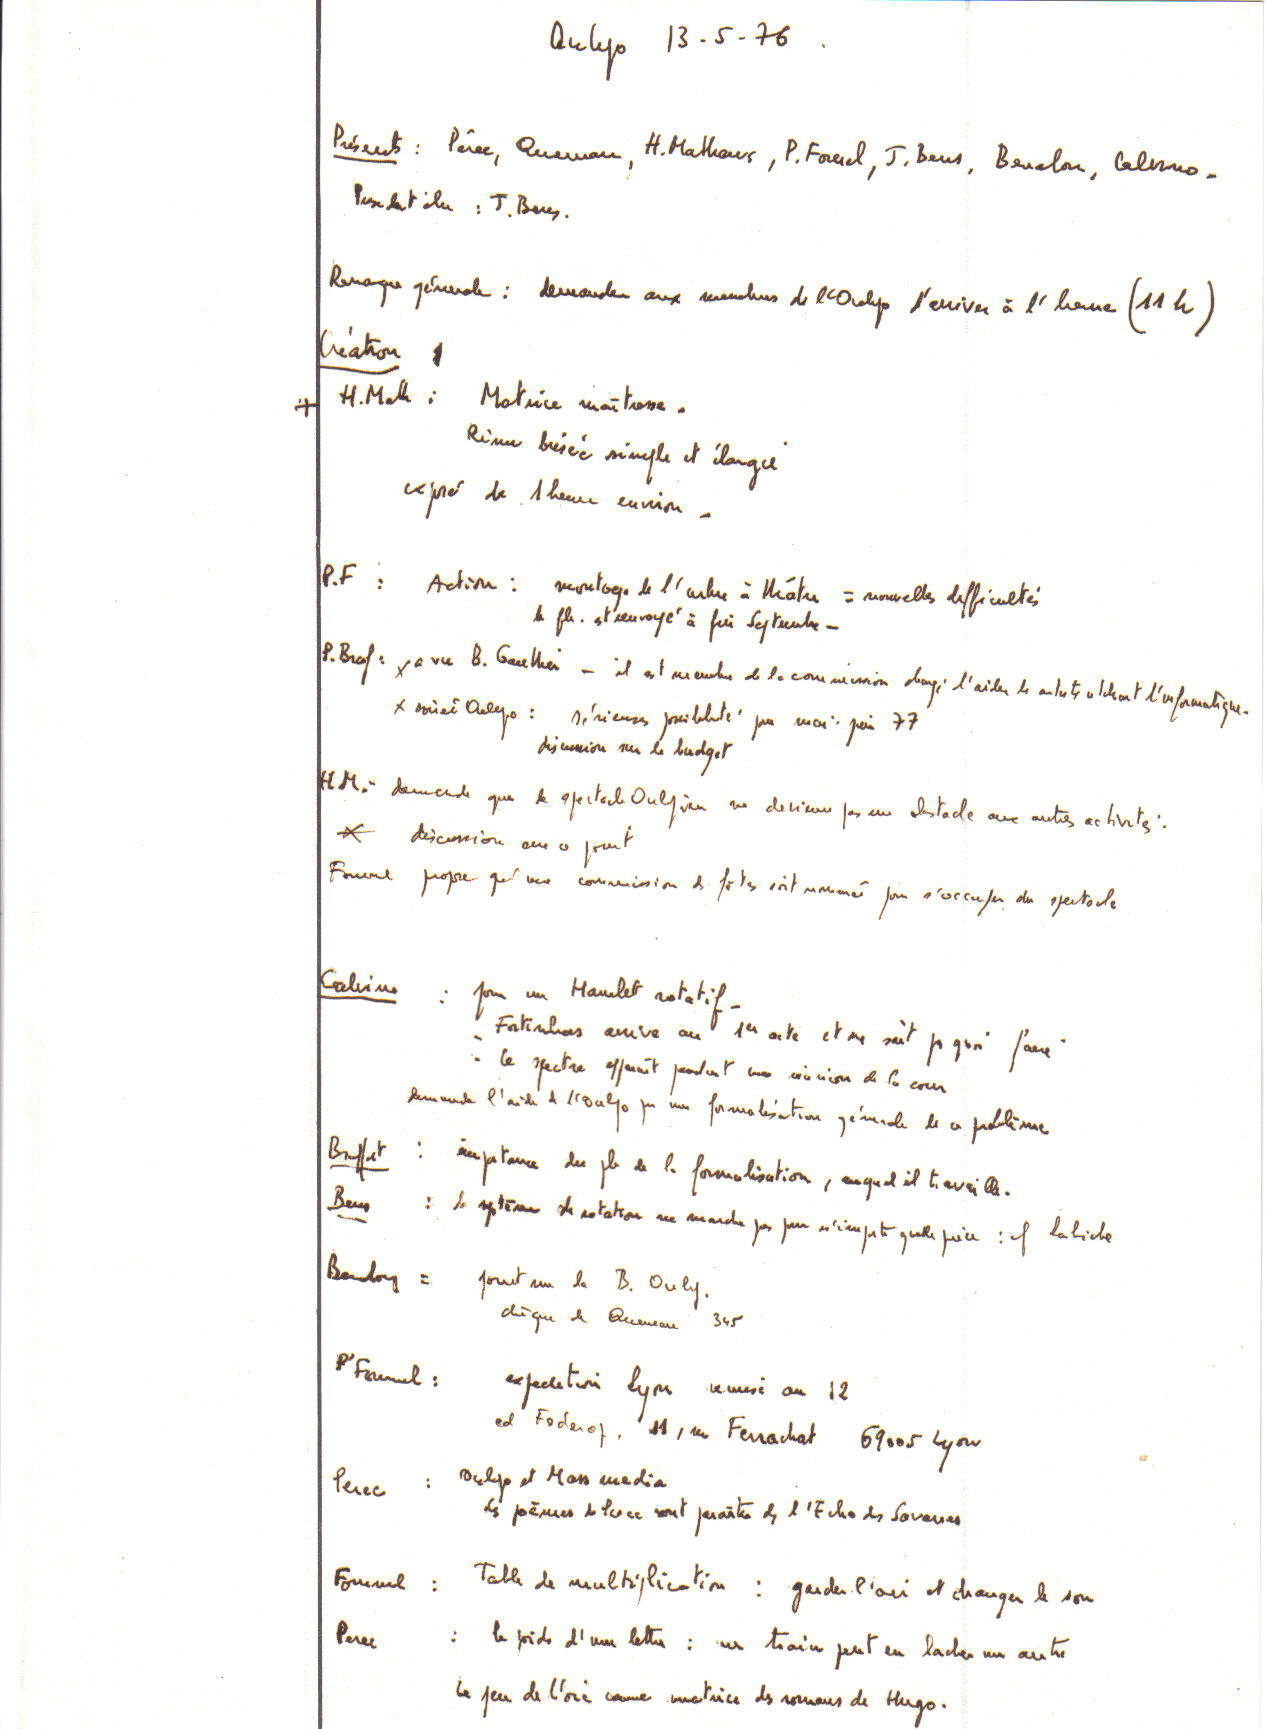 Oulipo 13-5-76.
Présents : Pérec, Queneau, H. Mathews, P. Fournel, J. Bens, Benabou, Calvino.
President élu : J. Bens.
Remarque générale : demander aux membres de l'Oulipo d'arriver à l'heure (11 h)
Création
+ H. Math : Matrice maîtresse.
Rime brisée simple et élargie
exposé de 1 heure environ -
P.F : Action : montage de l'arbre à théâtre = nouvelles difficultés
le pb. est renvoyé à fin Septembre -
P. Braf : x a vu B. Gauthier - il est membre de la commission chargé d'aider les artists utilisant l'informatique.
x soirée Oulipo : sérieuses possibilité pr mai-juin 77
discussion sur le budget
H.M. - demande que le spectacle Oulipien ne devienne pas un obstacle aux autres activités.
x discussion sur ce point
Fournel propose qu'une commission des fêtes soit nommée pour s'occuper du spectacle
Calvino : pour un Hamlet rotatif -
- Fortinbras arrive au 1er acte et ne sait pas quoi faire
- le spectre apparait pendant une réunion de la cour
demande l'aide de l'Oulipo pr une formalisation générale de ce problème
Braffort : importance du pb de la formalisation, auquel il travaille.
Bens : le système de rotation ne marche pas pour n'importe quelle pièce : cf Labiche
Benabou = point sur la B. Oulip.
chèque de Queneau 345
P. Fournel : expedition Lyon remise au 12
11, rue Ferrachat 69005 Lyon
Perec : Oulipo et Mass media
des poèmes de Perec vont paraître ds l'Echo des Savanes
Fournel : Table de multiplication : garder l'air et changer le son
Perec : le poids d'une lettre : un train peut en lacher un autre
Le jeu de l'oie comme matrice des romans de Hugo.